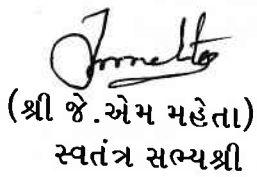 (શ્રી જે.એમ મહેતા)
સ્વતંત્ર સભ્યશ્રી